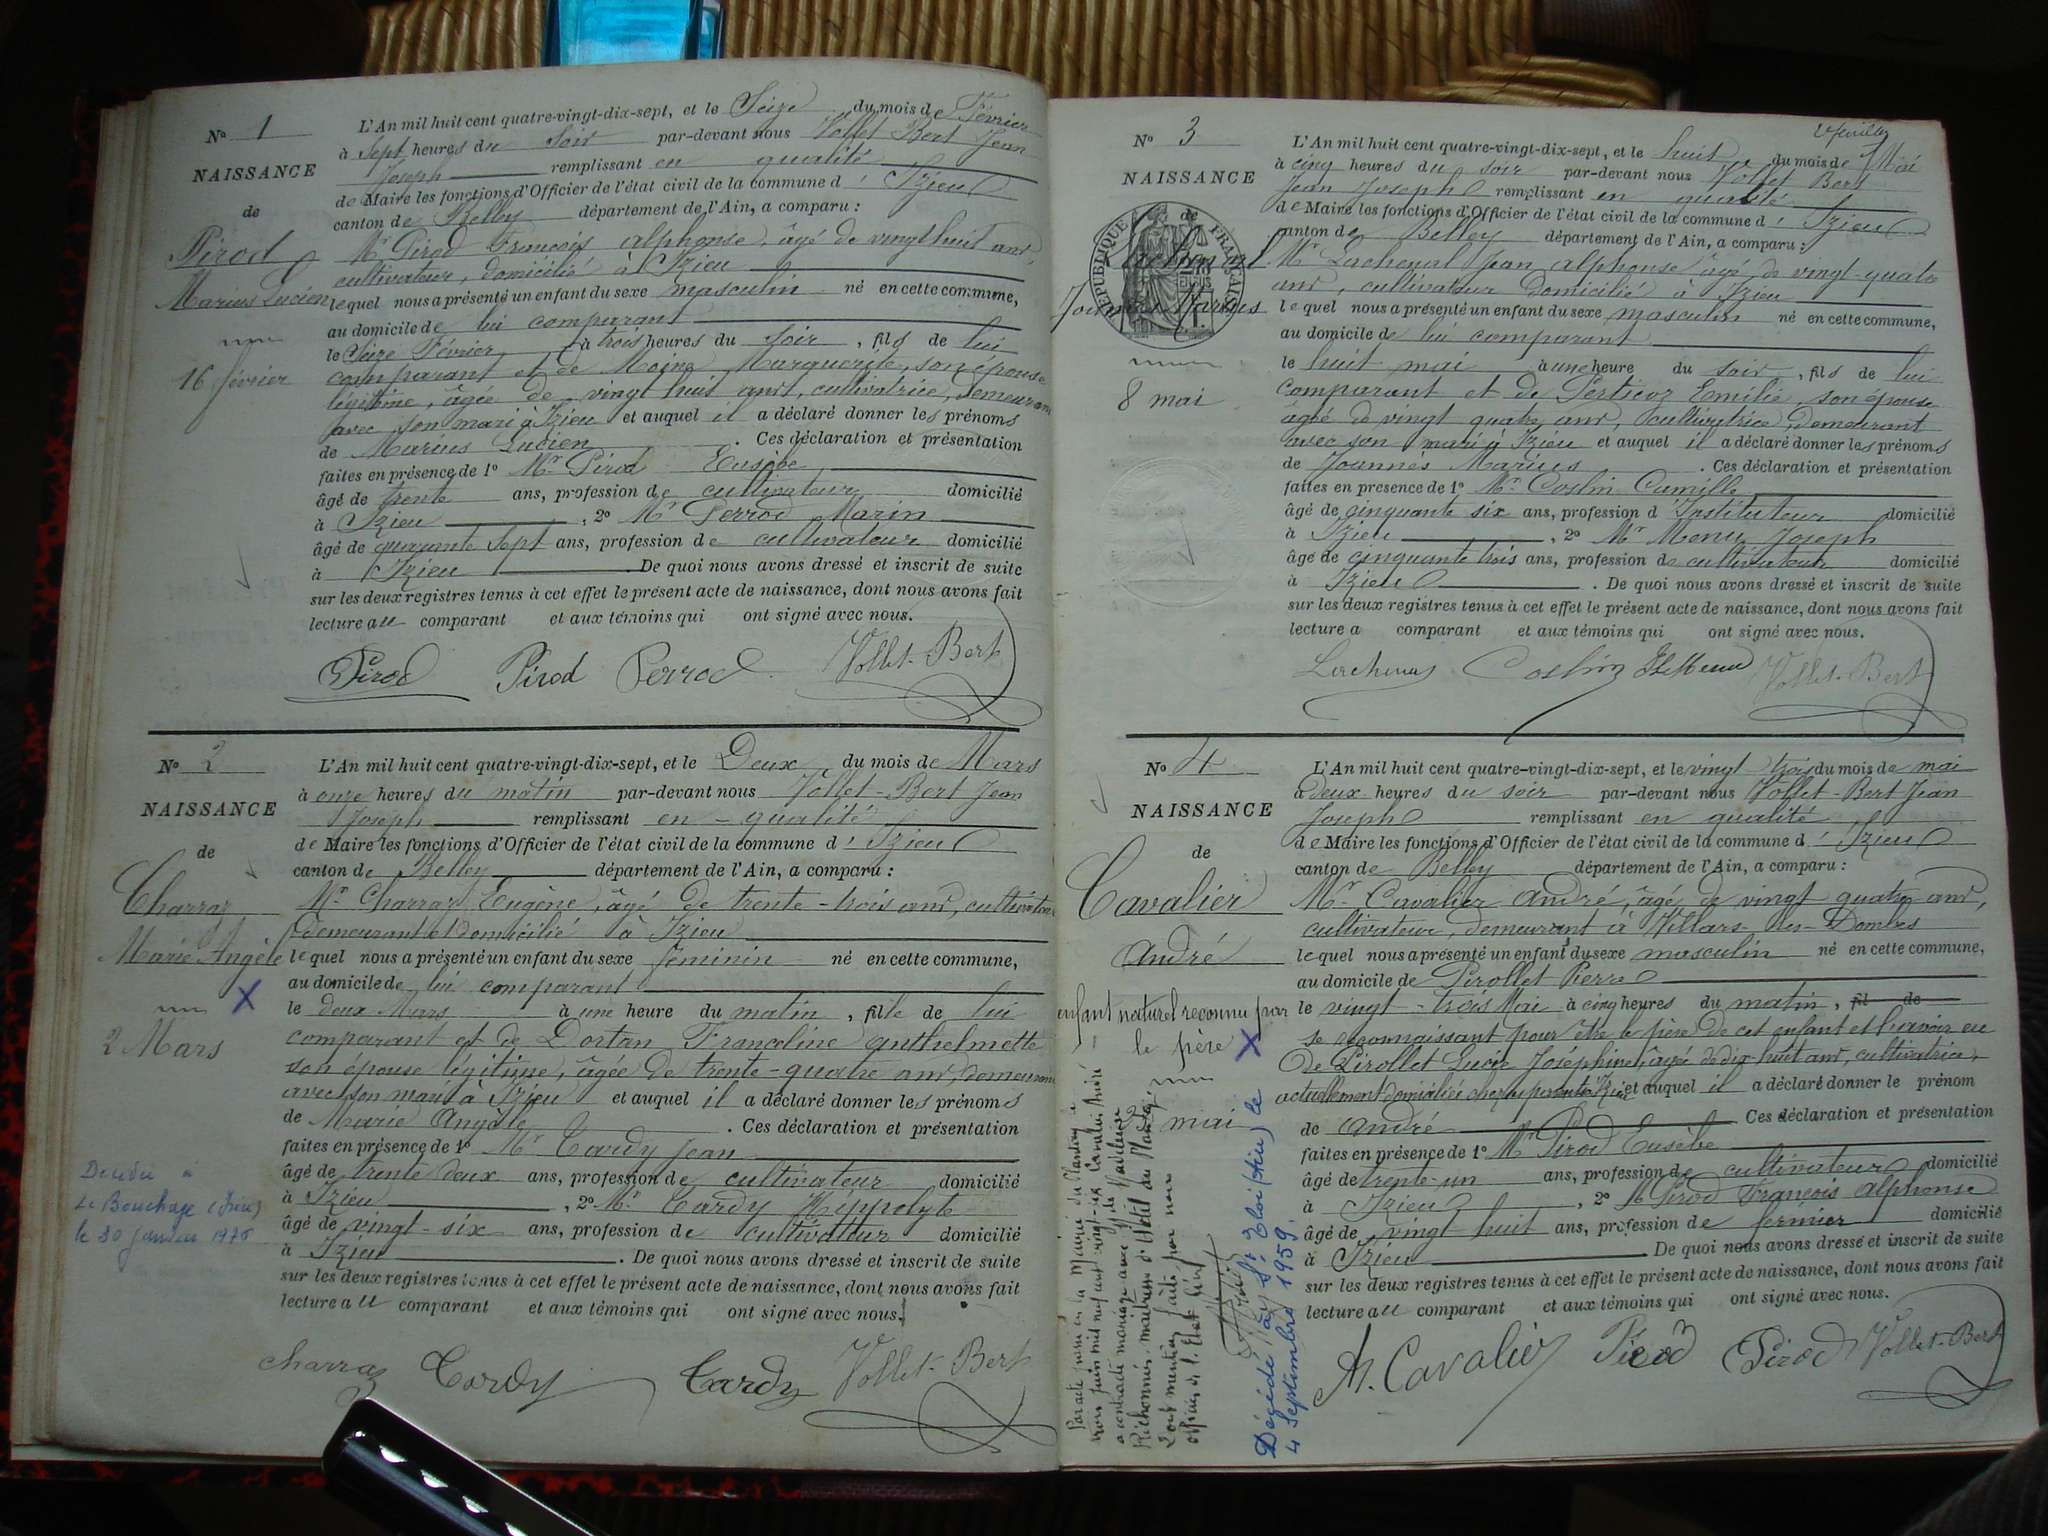 N° 1
NAISSANCE
de
Pirod
Marius Lucien
16 février
L'An mil huit cent quatre-vingt-dix-sept, et le Seize du mois de Février
à Sept heures du Soir par-devant nous Vollet Bert Jean
Joseph remplissant en qualité
de Maire les fonctions d'Officier de l'état civil de la commune d' Izieu
canton de Belley département de l'Ain, a comparu :
Mr Pirod François alphonse, âgé de vingt huit ans,
cultivateur, domicilié à Izieu
lequel nous a présenté un enfant du sexe masculin né en cette commune,
au domicile de lui comparant
le Seize Février à trois heures du soir, fils de lui
comparant et de Moine Marguerite, son épouse
légitime, âgée de vingt huit ans, cultivatrice, demeurant
avec son mari à Izieu et auquel il a déclaré donner les prénoms
de Marius Lucien. Ces déclaration et présentation
faites en présence de 1° Mr Pirod Eusèbe
âgé de trente ans, profession de cultivateur domicilié
à Izieu, 2° Mr Perrod Marin
âgé de quarante Sept ans, profession de cultivateur domicilié
à Izieu. De quoi nous avons dressé et inscrit de suite
sur les deux registres tenus à cet effet le présent acte de naissance, dont nous avons fait
lecture au comparant et aux témoins qui ont signé avec nous.
Pirod Pirod Perrod Vollet-Bert
N° 2
NAISSANCE
de
Charraz
Marie Angèle
X
2 Mars
Décédée à
Le Bouchage (Isère)
le 30 janvier 1976
L'An mil huit cent quatre-vingt-dix-sept, et le Deux du mois de Mars
à onze heures du matin par-devant nous Vollet-Bert Jean
Joseph remplissant en - qualité
de Maire les fonctions d'Officier de l'état civil de la commune d' Izieu
canton de Belley département de l'Ain, a comparu :
Mr Charraz Eugène, âgé de trente-trois ans, cultivateur
demeurant et domicilié à Izieu
lequel nous a présenté un enfant du sexe féminin né en cette commune,
au domicile de lui comparant
le deux Mars à une heure du matin, fille de lui
comparant et de Dortan Franceline anthelmette
son épouse légitime, âgée de trente-quatre ans, demeurant
avec son mari à Izieu et auquel il a déclaré donner les prénoms
de Marie Angèle. Ces déclaration et présentation
faites en présence de 1° Mr Tardy Jean
âgé de trente deux ans, profession de cultivateur domicilié
à Izieu, 2° Mr Tardy Hippolyte
âgé de vingt-six ans, profession de cultivateur domicilié
à Izieu. De quoi nous avons dressé et inscrit de suite
sur les deux registres tenus à cet effet le présent acte de naissance, dont nous avons fait
lecture au comparant et aux témoins qui ont signé avec nous.
Charraz Tardy Tardy Vollet-Bert
2e feuillet
N° 3
NAISSANCE
de
RÉPUBLIQUE FRANÇAISE
Lachenal
Joannès Marius
8 mai
L'An mil huit cent quatre-vingt-dix-sept, et le huit du mois de Mai
à cinq heures du soir par-devant nous Vollet Bert
Jean Joseph remplissant en qualité
de Maire les fonctions d'Officier de l'état civil de la commune d' Izieu
canton de Belley département de l'Ain, a comparu :
Mr Lachenal Jean alphonse âgé de vingt-quatre
ans, cultivateur domicilié à Izieu
lequel nous a présenté un enfant du sexe masculin né en cette commune,
au domicile de lui comparant
le huit mai à une heure du soir, fils de lui
comparant et de Perticoz Emilie, son épouse
âgée de vingt quatre ans, cultivatrice, demeurant
avec son mari à Izieu et auquel il a déclaré donner les prénoms
de Joannès Marius. Ces déclaration et présentation
faites en présence de 1° Mr Coslin Camille
âgé de cinquante six ans, profession d'Instituteur domicilié
à Izieu, 2° Mr Joseph
âgé de cinquante trois ans, profession de cultivateur domicilié
à Izieu. De quoi nous avons dressé et inscrit de suite
sur les deux registres tenus à cet effet le présent acte de naissance, dont nous avons fait
lecture a comparant et aux témoins qui ont signé avec nous.
Lachenal Coslin Vollet-Bert
N° 4
NAISSANCE
de
Cavalier
André
enfant naturel reconnu par
le père X
23 mai
Par acte reçu en la Mairie
trois juin mil neuf cent vingt-six Cavalier André
a contracté mariage avec
Dont mention faite par nous
officier de l'Etat Civil
Décédé à St Eloi (Ain) le
4 Septembre 1959.
L'An mil huit cent quatre-vingt-dix-sept, et le vingt trois du mois de mai
à deux heures du soir par-devant nous Vollet-Bert Jean
Joseph remplissant en qualité
de Maire les fonctions d'Officier de l'état civil de la commune d' Izieu
canton de Belley département de l'Ain, a comparu :
Mr Cavalier André, âgé de vingt quatre ans,
cultivateur, demeurant à Villars-les-Dombes
lequel nous a présenté un enfant du sexe masculin né en cette commune,
au domicile de Pirollet Pierre
le vingt-trois Mai à cinq heures du matin, fil de
se reconnaissant pour être le père de cet enfant et l'avoir eu
de Pirollet Lucie Joséphine, âgée de dix-huit ans, cultivatrice,
actuellement domiciliée chez ses parents à Izieu et auquel il a déclaré donner le prénom
de André Ces déclaration et présentation
faites en présence de 1° Mr Pirod Eusèbe
âgé de trente-un ans, profession de cultivateur domicilié
à Izieu, 2° Mr Pirod François alphonse
âgé de vingt huit ans, profession de fermier domicilié
à Izieu De quoi nous avons dressé et inscrit de suite
sur les deux registres tenus à cet effet le présent acte de naissance, dont nous avons fait
lecture au comparant et aux témoins qui ont signé avec nous.
A. Cavalier Pirod Pirod Vollet-Bert